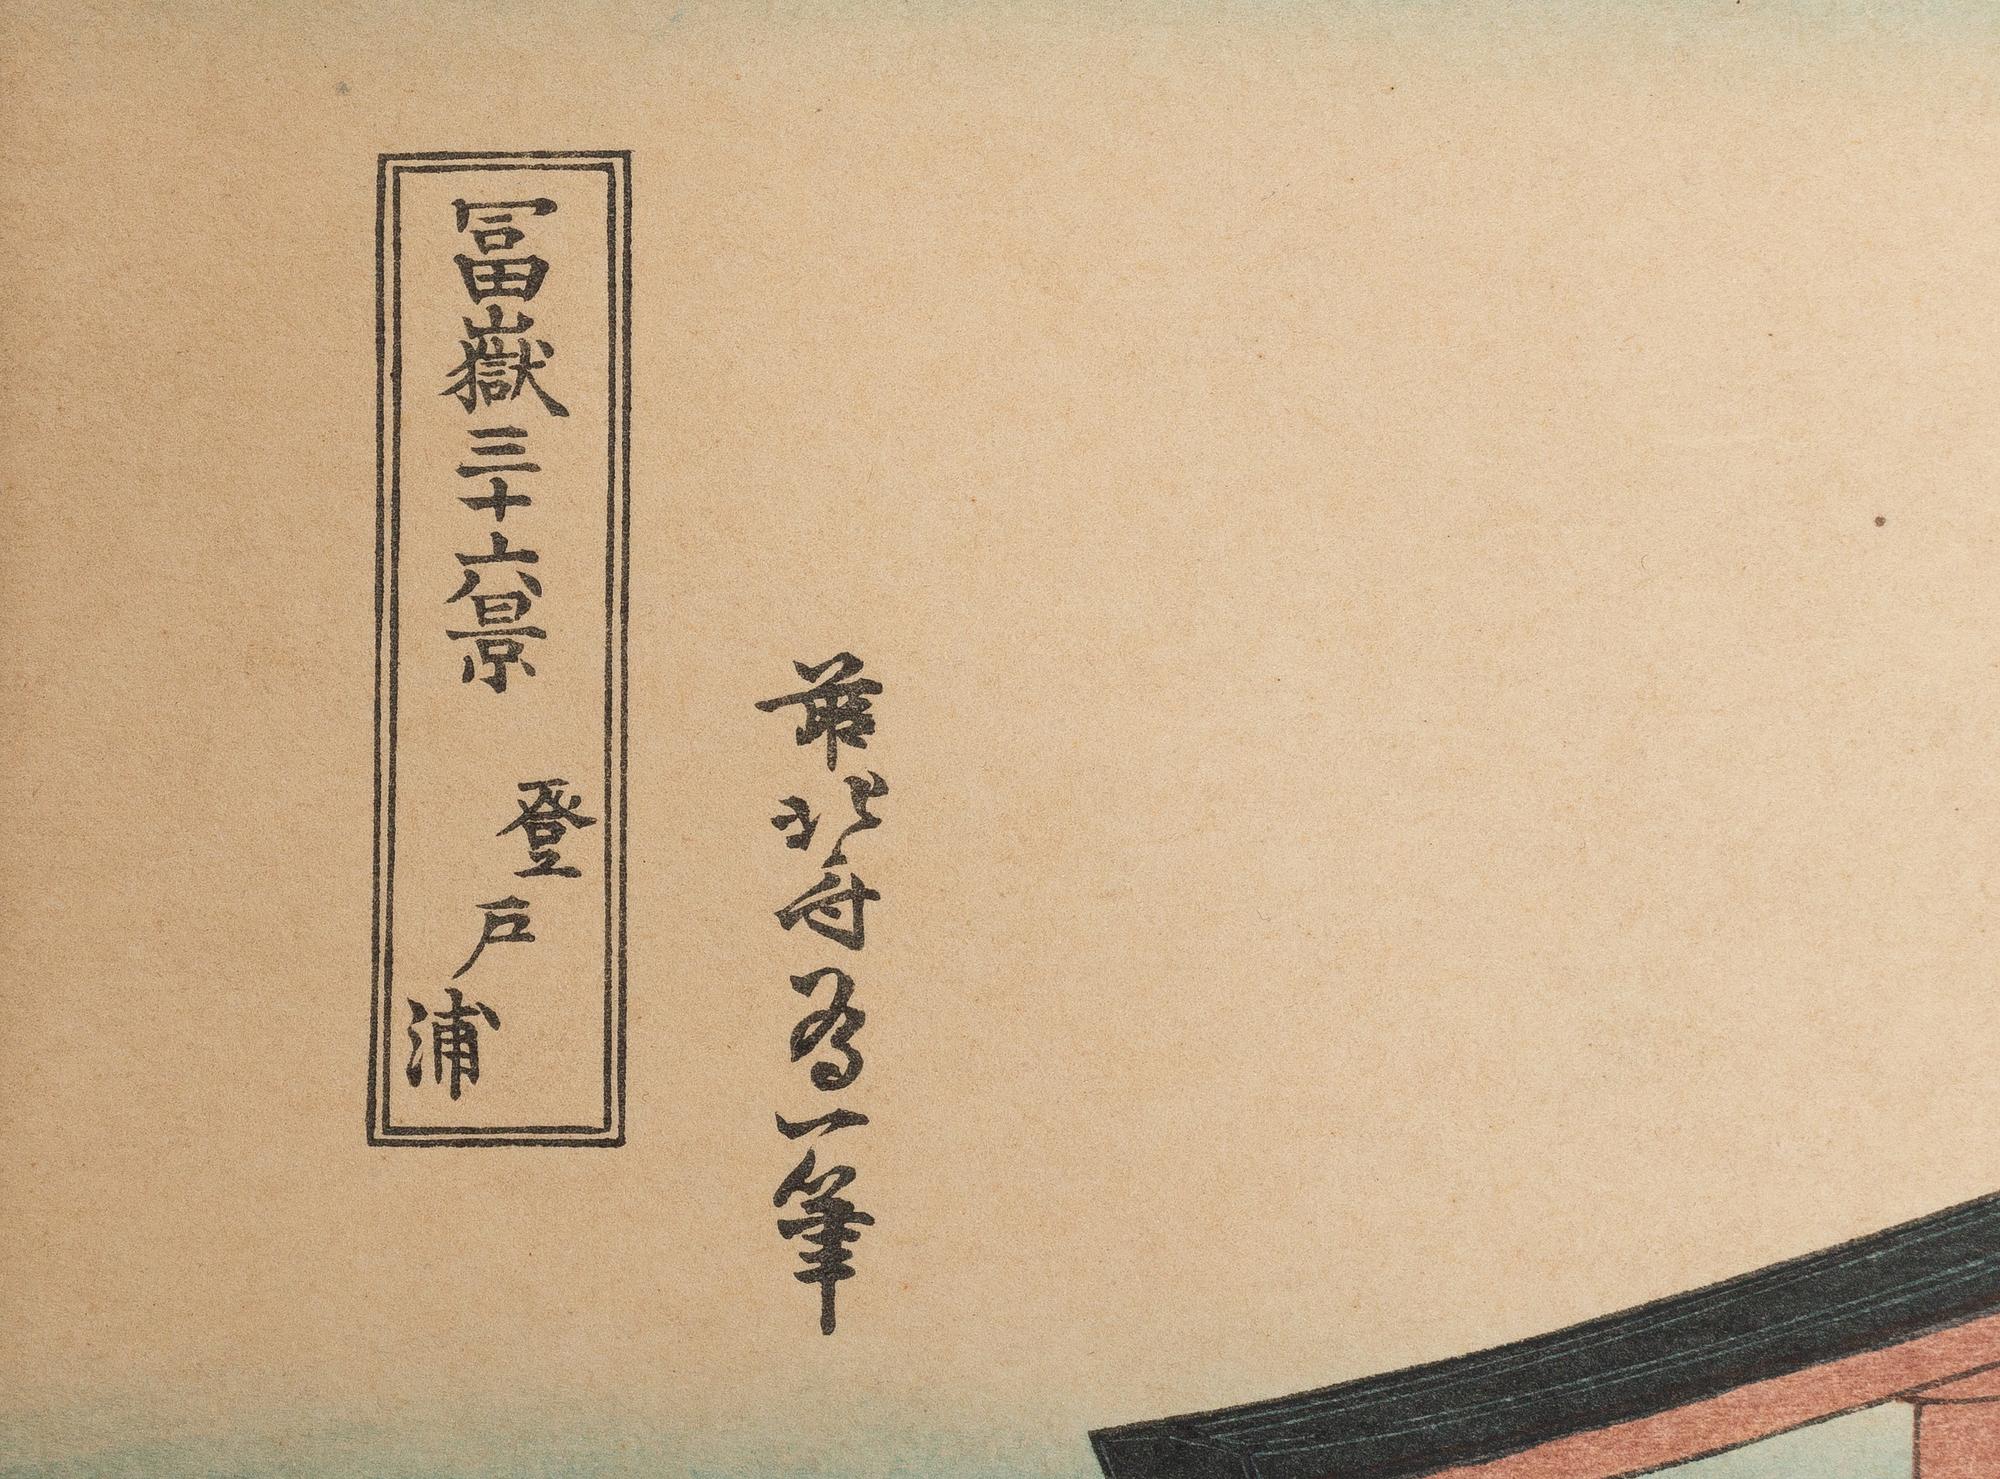 冨嶽三十六景 登戸浦
前北斎為一筆